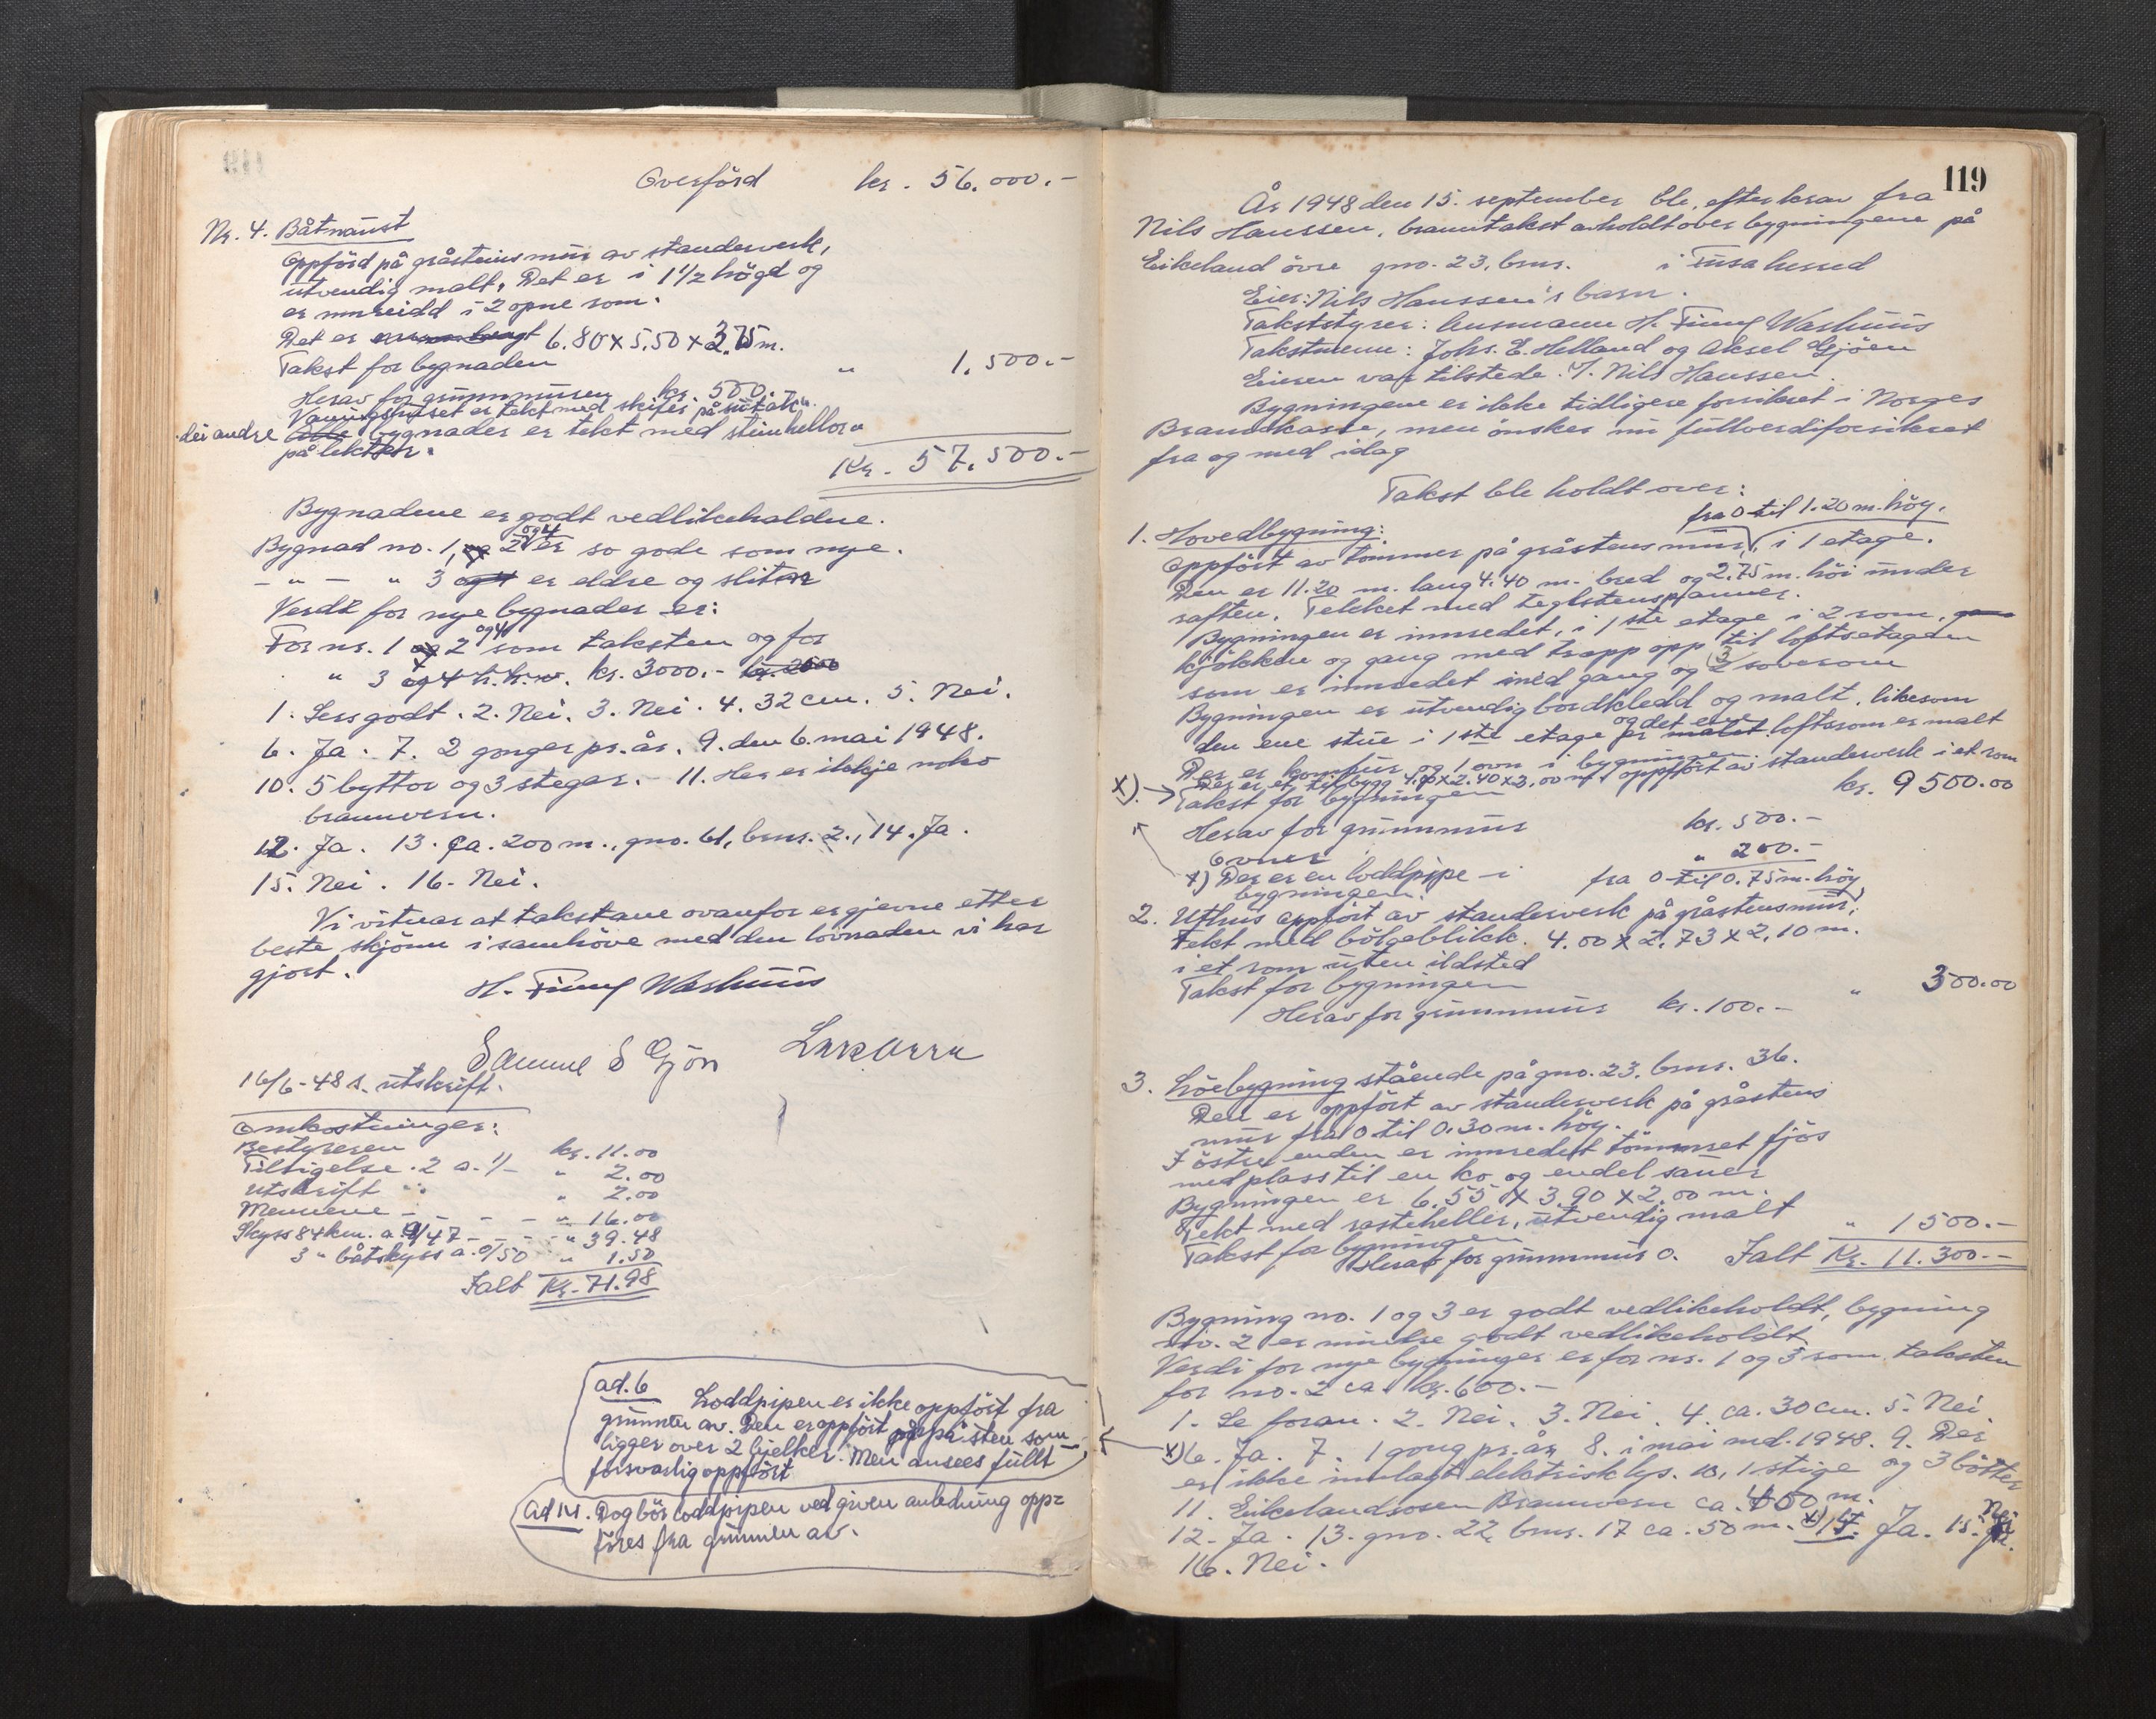 Overförd kr. 56.000.-
Nr. 4. Båtnaust
Oppförd på gråsteinsmur av standerverk,
utvendig malt. Det er i 1 1/2 högd og
er innreidd i 2 opne rom.
Det er 6.80 x 5.50 x 3.75 m.
Takst for bygnaden " 1.500.-
Herav for grunnmuren kr. 500.-
Våningshuset er tekt med skifer på sutak.
dei andre bygnader er tekt med steinhellor
på lekter.
Kr. 57.500.-
Bygnadene er godt vedlikehaldne.
Bygnad no. 1, 2 og 4 er so gode som nye.
- " - " 3 og 4 er eldre og slitne
Verdi for nye bygnader er:
For nr. 1 og 2 og 4 som taksten og for
" 3 og 4 h.h.v. kr. 3000.- kr. 2500
1. Sers godt. 2. Nei. 3. Nei. 4. 32 cm. 5. Nei.
6. Ja. 7. 2 gonger pr. år. 9. den 6. mai 1948.
10. 5 byttor og 3 steger. 11. Her er ikkje noko
brannvern.
12. Ja. 13. Ca. 200 m., gno. 61, brnr. 2., 14. Ja.
15. Nei. 16. Nei.
Vi vitnar at takstane ovanfor er gjevne etter
beste skjönn i samhöve med den lovnaden vi har
gjort.
H. Finny Warhuus
Samuel S Gjön Lars Orra
16/6-48 s. utskrift.
Omkostninger:
Bestyreren kr. 11.00
Tilsigelse. 2 a. 1/- " 2.00
Utskrift " 2.00
Mennene - - - - " 16.00
Skyss 84 km. a. 0/47 - - - " 39.48
3 " båtskyss a. 0/50 " 1.50
Ialt Kr. 71.98
ad. 6 Loddpipen er ikke oppfört fra
grunnen av. Den er oppfört på sten som
ligger over 2 bjelker. Men ansees fullt
forsvarlig oppfört
Ad 14. Dog bör loddpipen ved given anledning opp=
föres fra grunnen av.
119
År 1948 den 15. september ble, efter krav fra
Nils Hanssen, branntakst avholdt over bygningene på
Eikeland övre gno. 23, brnr. i Fusa herred
Eier: Nils Hanssen's barn.
Takststyrer: lensmann H. Finny Warhuus
Takstmenn: Johs. E. Helland og Aksel Gjöen
Eieren var tilstede. V. Nils Hanssen.
Bygningene er ikke tidligere forsikret i Norges
Brannkasse, men önskes nu fullverdiforsikret
fra og med idag
Takst ble holdt over:
fra 0 til 1.20 m. höy.
1. Hovedbygning:
Oppfört av tömmer på gråstensmur, i 1 etage.
Den er 11.20 m. lang 4.40 m. bred og 2.75 m. höi under
raften. Tekket med teglstenspanner.
Bygningen er innredet, i 1ste etage i 2 rom,
kjökken og gang med trapp opp til loftsetagen
som er innredet med gang og 3 soverom
Bygningen er utvendig bordkledd og malt, likesom
den ene stue i 1ste etage og det ene loftsrom er malt
Der er komfur og 1 ovn i bygningen.
x) → Der er et tilbygg 4.40 x 2.40 x 3.00 m. oppfört av standerverk i et rom
Takst for bygningen kr. 9500.00
Herav for grunnmur kr. 500.-
Ovner " 200.-
x) Der er en loddpipe i
bygningen.
fra 0 til 0.75 m. höy
2. Uthus oppfört av standerverk på gråstensmur,
Tekt med bölgeblikk. 4.00 x 2.73 x 2.10 m.
i et rom uten ildsted
Takst for bygningen " 300.00
Herav for grunnmur kr. 100.-
3. Löebygning stående på gno. 23, brnr. 36.
Den er oppfört av standerverk på gråstens
mur fra 0 til 0.30 m. höy.
I östre enden er innredet tömmret fjös
med plass til en ko og endel sauer
Bygningen er 6.55 x 3.90 x 2.00 m.
Tekt med rasteheller, utvendig malt
Takst for bygningen " 1500.-
Herav for grunnmur 0. Ialt Kr. 11.300.-
Bygning no. 1 og 3 er godt vedlikeholdt, bygning
no. 2 er mindre godt vedlikeholdt
Verdi for nye bygninger er for nr. 1 og 3 som taksten
for no. 2 ca. kr. 600.-
1. Se foran. 2. Nei. 3. Nei. 4. ca. 30 cm. 5. Nei
x) 6. Ja. 7. 1 gong pr. år. 8. i mai md. 1948. 9. Der
er ikke innlagt elektrisk lys. 10. 1 stige og 3 bötter
11. Eikelandsosen Brannvern ca. 400 m.
12. Ja. 13. gno. 22, brnr. 17 ca. 50 m. x) 14. Ja. 15. Nei
16. Nei.